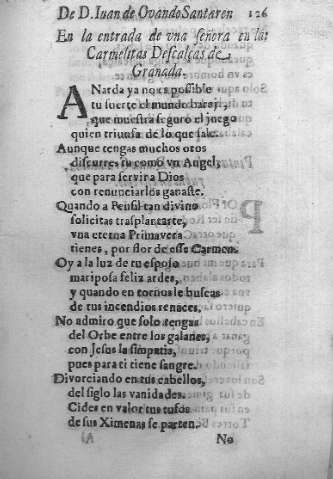 De D. Iuan de Ovando Santaren 126
En la entrada de vna señora en las
Carmelitas Descalças de
Granada.
ANarda ya no es possible
tu suerte el mundo baraje,
que muestra seguro el juego
quien triunfa de lo que sale.
Aunque tengas muchos otos
discurres tu como vn Angel,
que para servir a Dios
con renunciarlos ganaste.
Quando a Pensil tan divino
solicitas trasplantarte,
vna eterna Primavera
tienes, por flor de esse Carmen.
Oy a la luz de tu esposo
mariposa feliz ardes,
y quando en tornos le buscas
de tus incendios renaces.
No admiro que solo tengas
del Orbe entre los galanes,
con Jesus la simpatia,
pues para ti tiene sangre.
Divorciando en tus cabellos,
del siglo las vanidades.
Cides en valor tus tufos
de sus Ximenas se parten.
No